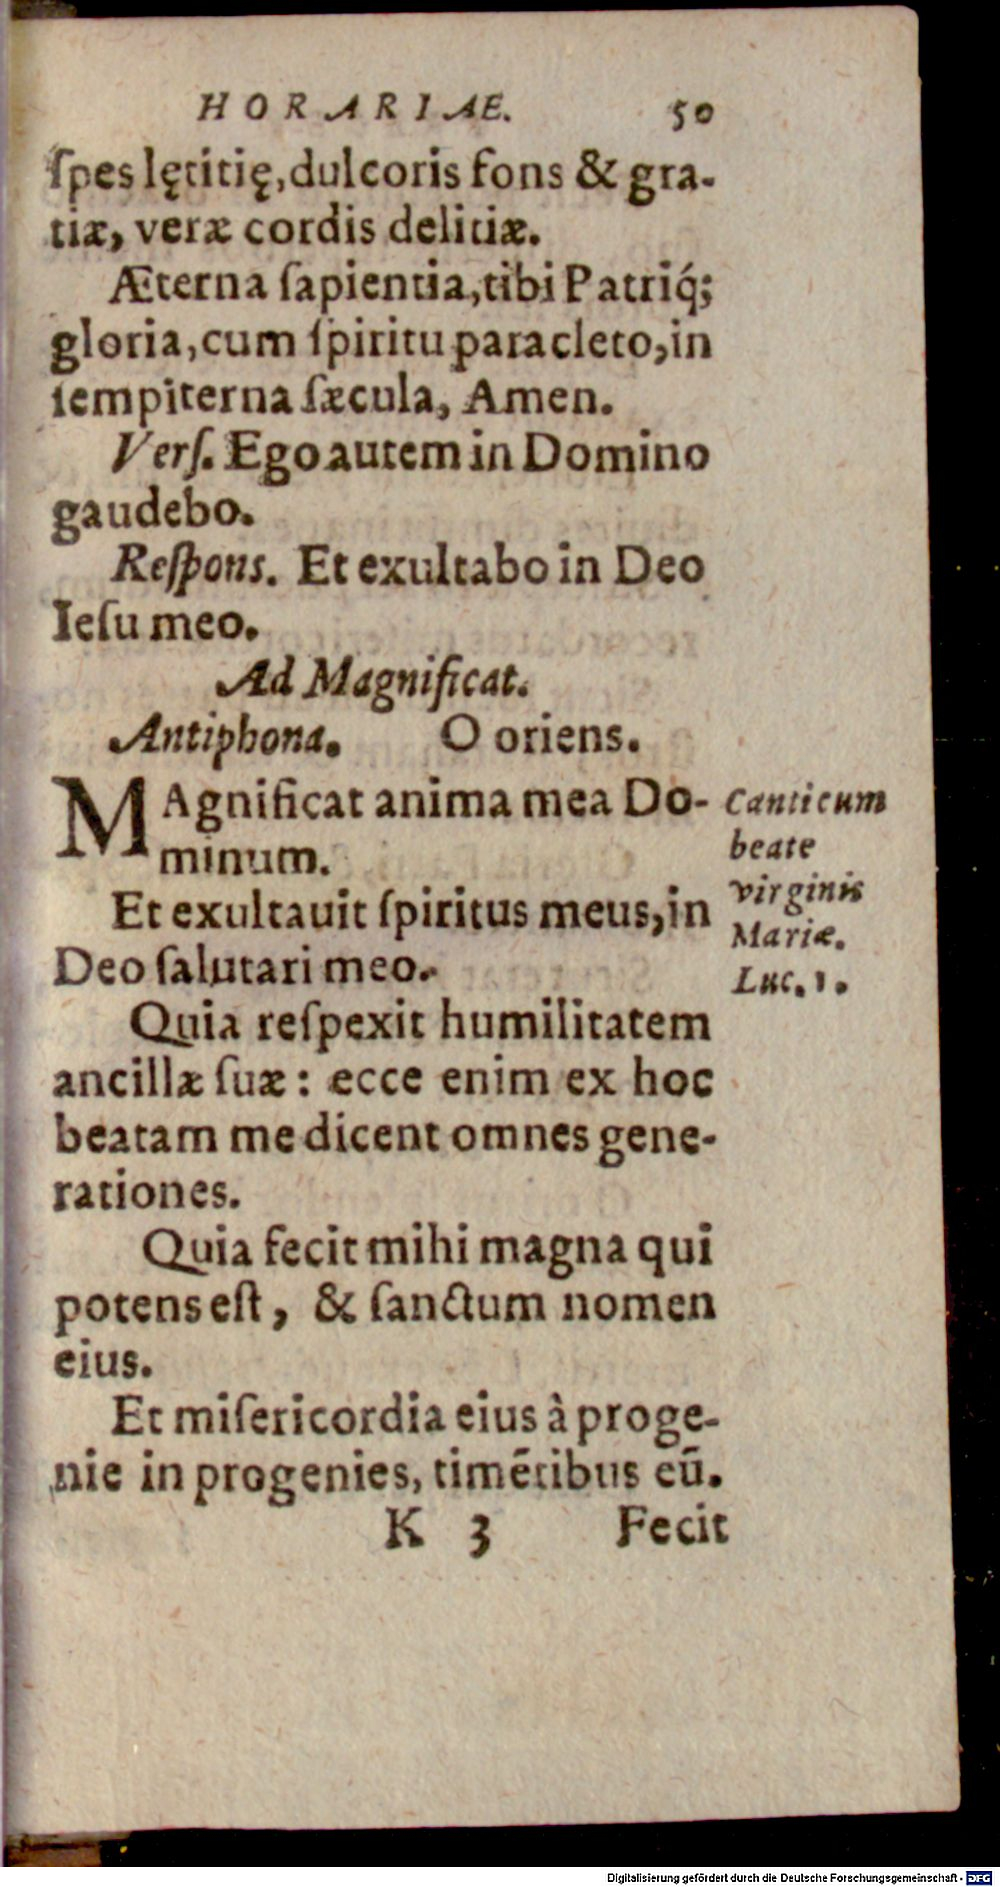 HORARIAE. 50
ſpes lętitię, dulcoris fons & gra-
tiæ, veræ cordis delitiæ.
Æterna ſapientia, tibi Patriq́;
gloria, cum ſpiritu paracleto, in
ſempiterna ſæcula, Amen.
Verſ. Ego autem in Domino
gaudebo.
Reſpons. Et exultabo in Deo
Ieſu meo.
Ad Magnificat.
Antiphona. O oriens.
MAgnificat anima mea Do-
minum.
Canticum
beate
virginis
Mariæ.
Luc. 1.
Et exultauit ſpiritus meus, in
Deo ſalutari meo.
Quia reſpexit humilitatem
ancillæ ſuæ: ecce enim ex hoc
beatam me dicent omnes gene-
rationes.
Quia fecit mihi magna qui
potens eſt, & ſanctum nomen
eius.
Et miſericordia eius à proge-
nie in progenies, timētibus eū.
K 3 Fecit
Digitalisierung gefördert durch die Deutsche Forschungsgemeinschaft - DFG